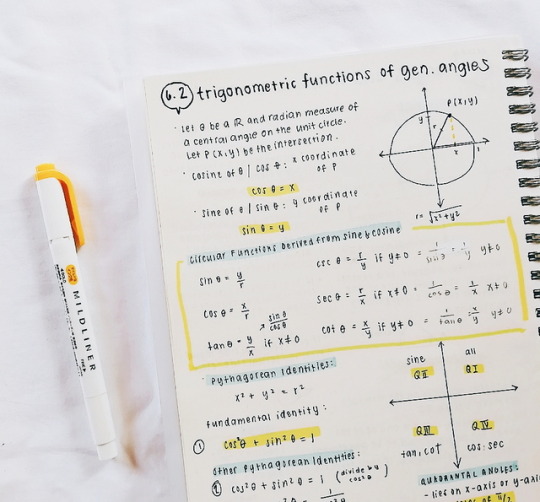 6.2 trigonometric functions of gen. angles
· let θ be a ℝ and radian measure of
a central angle on the unit circle.
Let P(x,y) be the intersection.
· cosine of θ / cos θ : x coordinate
of P
cos θ = x
· sine of θ / sin θ : y coordinate
of P
sin θ = y
P(x,y)
y
r
x
1
r = √x²+y²
circular functions derived from sine & cosine
sin θ = y/r
csc θ = r/y if y≠0 = 1/sin θ = 1/y y≠0
cos θ = x/r
sec θ = r/x if x≠0 = 1/cos θ = 1/x x≠0
↗ sin θ/cos θ
tan θ = y/x if x≠0
cot θ = x/y if y≠0 = 1/tan θ = x/y y≠0
· Pythagorean Identities:
x² + y² = r²
fundamental identity:
① cos²θ + sin²θ = 1
other Pythagorean Identities:
② cos²θ + sin²θ = 1 (divide by cos²θ)
sine
QII
all
QI
QIII
tan, cot
QIV
cos, sec
QUADRANTAL ANGLES:
lies on x-axis or y-axis
of π/2
MILDLINER